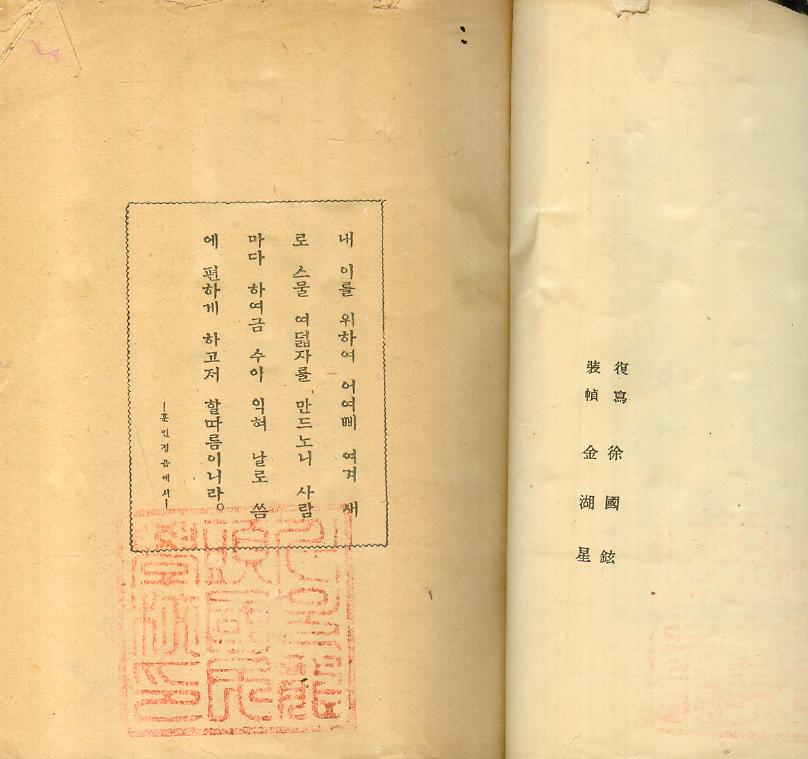 復寫 徐國鉉
裝幀 金湖星
내 이를 위하여 어여삐 여겨 새
로 스물 여덟자를 만드노니 사람
마다 하여금 수이 익혀 날로 씀
에 편하게 하고저 할따름이니라。
—훈민정음에서—
國民
學校印